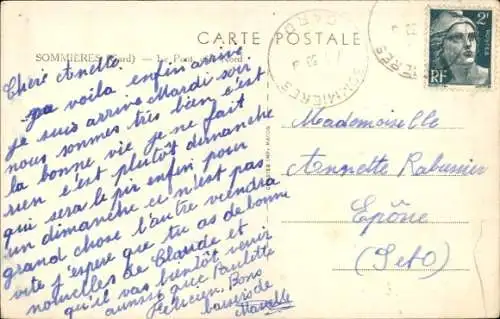 CARTE POSTALE
SOMMIÈRES (Gard) — Le Pont Nord
Chère Anette
ça voila enfin arrive
je suis arrive Mardi soir
nous sommes très bien c'est
la bonne vie je ne fait
rien c'est plutôt dimanche
qui sera le pir enfin pour
un dimanche ci n'est pas
grand chose l'autre viendra
vite j'espere que tu as de bonne
nouvelles de Claude et
qu'il vas bientôt venir
aussi que Paulette
Lucien. Bons
baisers de
SOMMIERES
GARD
2F
POSTES
RF
Mademoiselle
Annette Rabumier
Epône
(S et O)